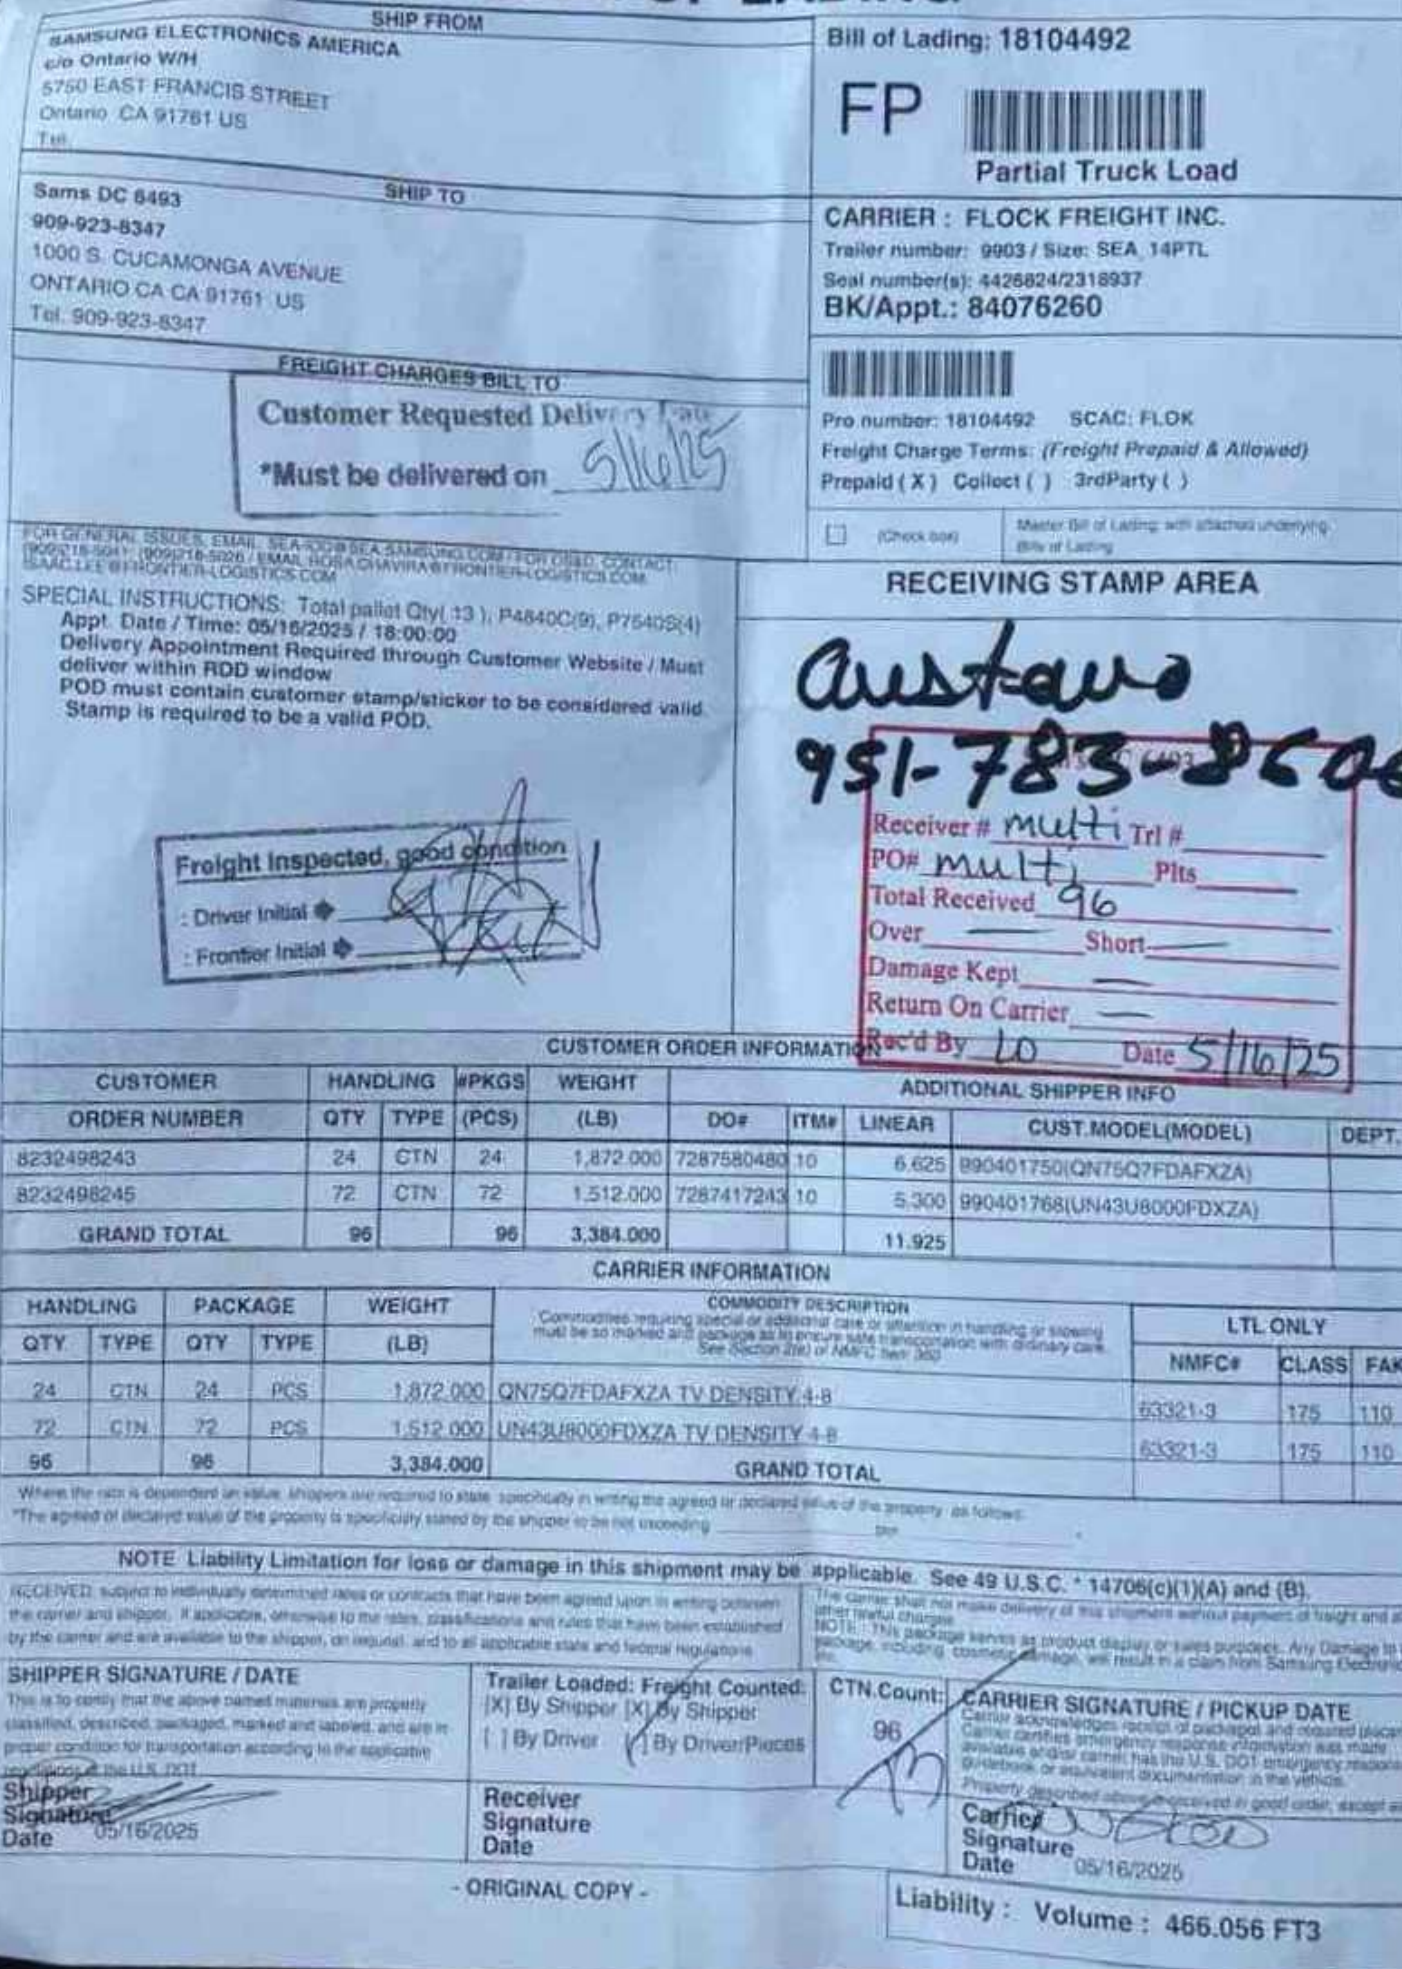 SHIP FROM
SAMSUNG ELECTRONICS AMERICA
c/o Ontario W/H
5750 EAST FRANCIS STREET
Ontario CA 91761 US
Tel.
Bill of Lading: 18104492
FP
Partial Truck Load
SHIP TO
Sams DC 6493
909-923-8347
1000 S. CUCAMONGA AVENUE
ONTARIO CA CA 91761 US
Tel. 909-923-8347
CARRIER : FLOCK FREIGHT INC.
Trailer number: 9903 / Size: SEA_14PTL
Seal number(s): 4426824/2318937
BK/Appt.: 84076260
FREIGHT CHARGES BILL TO
Customer Requested Delivery Date
*Must be delivered on 5/16/25
Pro number: 18104492 SCAC: FLOK
Freight Charge Terms: (Freight Prepaid & Allowed)
Prepaid ( X ) Collect ( ) 3rdParty ( )
(Check box)
Master Bill of Lading: with attached underlying
Bills of Lading
SPECIAL INSTRUCTIONS: Total pallet Qty( 13 ), P4840C(9), P7640S(4)
Appt. Date / Time: 05/16/2025 / 18:00:00
Delivery Appointment Required through Customer Website / Must
deliver within RDD window
POD must contain customer stamp/sticker to be considered valid.
Stamp is required to be a valid POD.
RECEIVING STAMP AREA
Gustavo
951-783-860
Receiver # multi Trl #
PO# multi Plts
Total Received 96
Over — Short —
Damage Kept —
Return On Carrier —
Rec'd By LO Date 5/16/25
Freight Inspected, good condition
: Driver Initial
: Frontier Initial
CUSTOMER ORDER INFORMATION
CUSTOMER HANDLING #PKGS WEIGHT ADDITIONAL SHIPPER INFO
ORDER NUMBER QTY TYPE (PCS) (LB) DO# ITM# LINEAR CUST.MODEL(MODEL) DEPT.
8232498243 24 CTN 24 1,872.000 7287580480 10 6.625 990401750(QN75Q7FDAFXZA)
8232498245 72 CTN 72 1,512.000 7287417243 10 5.300 990401768(UN43U8000FDXZA)
GRAND TOTAL 96 96 3,384.000 11.925
CARRIER INFORMATION
HANDLING PACKAGE WEIGHT COMMODITY DESCRIPTION LTL ONLY
Commodities requiring special or additional care or attention in handling or stowing
must be so marked and package as to encure safe transportation with ordinary care.
See Section 2(e) of NMFC Item 360
QTY TYPE QTY TYPE (LB) NMFC# CLASS FAK
24 CTN 24 PCS 1,872.000 QN75Q7FDAFXZA TV DENSITY 4-8 63321-3 175 110
72 CTN 72 PCS 1,512.000 UN43U8000FDXZA TV DENSITY 4-8 63321-3 175 110
96 96 3,384.000 GRAND TOTAL
Where the rate is dependent on value, shippers are required to state specifically in writing the agreed or declared value of the property as follows:
"The agreed or declared value of the property is specifically stated by the shipper to be not exceeding per .
NOTE Liability Limitation for loss or damage in this shipment may be applicable. See 49 U.S.C. * 14706(c)(1)(A) and (B).
RECEIVED, subject to individually determined rates or contracts that have been agreed upon in writing between
the carrier and shipper, if applicable, otherwise to the rates, classifications and rules that have been established
by the carrier and are available to the shipper, on request, and to all applicable state and federal regulations
The carrier shall not make delivery of this shipment without payment of freight and all
other lawful charges.
NOTE : This package serves as product display or sales purposes. Any Damage to
package, including, cosmetic damage, will result in a claim from Samsung
SHIPPER SIGNATURE / DATE
This is to certify that the above named materials are properly
classified, described, packaged, marked and labeled, and are in
proper condition for transportation according to the applicable
regulations of the U.S. DOT
Shipper
Signature
Date 05/16/2025
Trailer Loaded: Freight Counted:
[X] By Shipper [X] By Shipper
[ ] By Driver [ ] By Driver/Pieces
Receiver
Signature
Date
CTN.Count:
96
CARRIER SIGNATURE / PICKUP DATE
Carrier acknowledges receipt of packages and required
Carrier certifies emergency response information was made
available and/or carrier has the U.S. DOT emergency
guidebook or equivalent documentation in the vehicle.
Property described above is received in good order, except as
Carrier
Signature
Date 05/16/2025
- ORIGINAL COPY -
Liability : Volume : 466.056 FT3